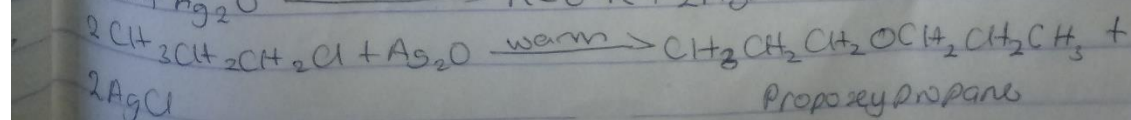 2CH3CH2CH2Cl + Ag2O warm → CH3CH2CH2OCH2CH2CH3 +
2AgCl Propoxypropane